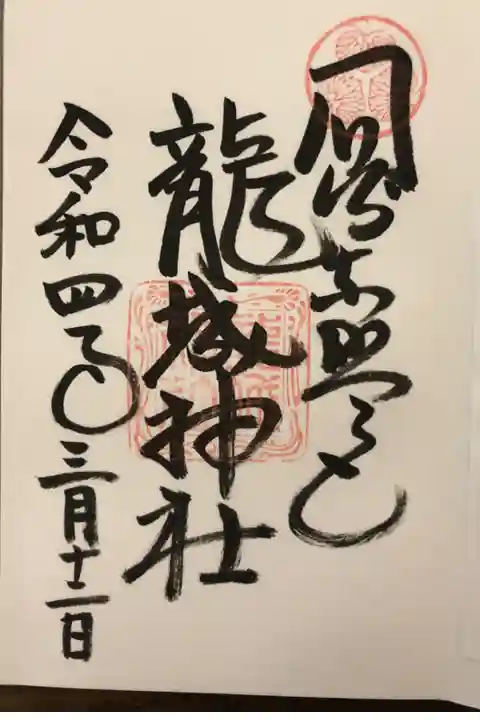 岡崎東照宮
龍城神社
令和四年三月十二日